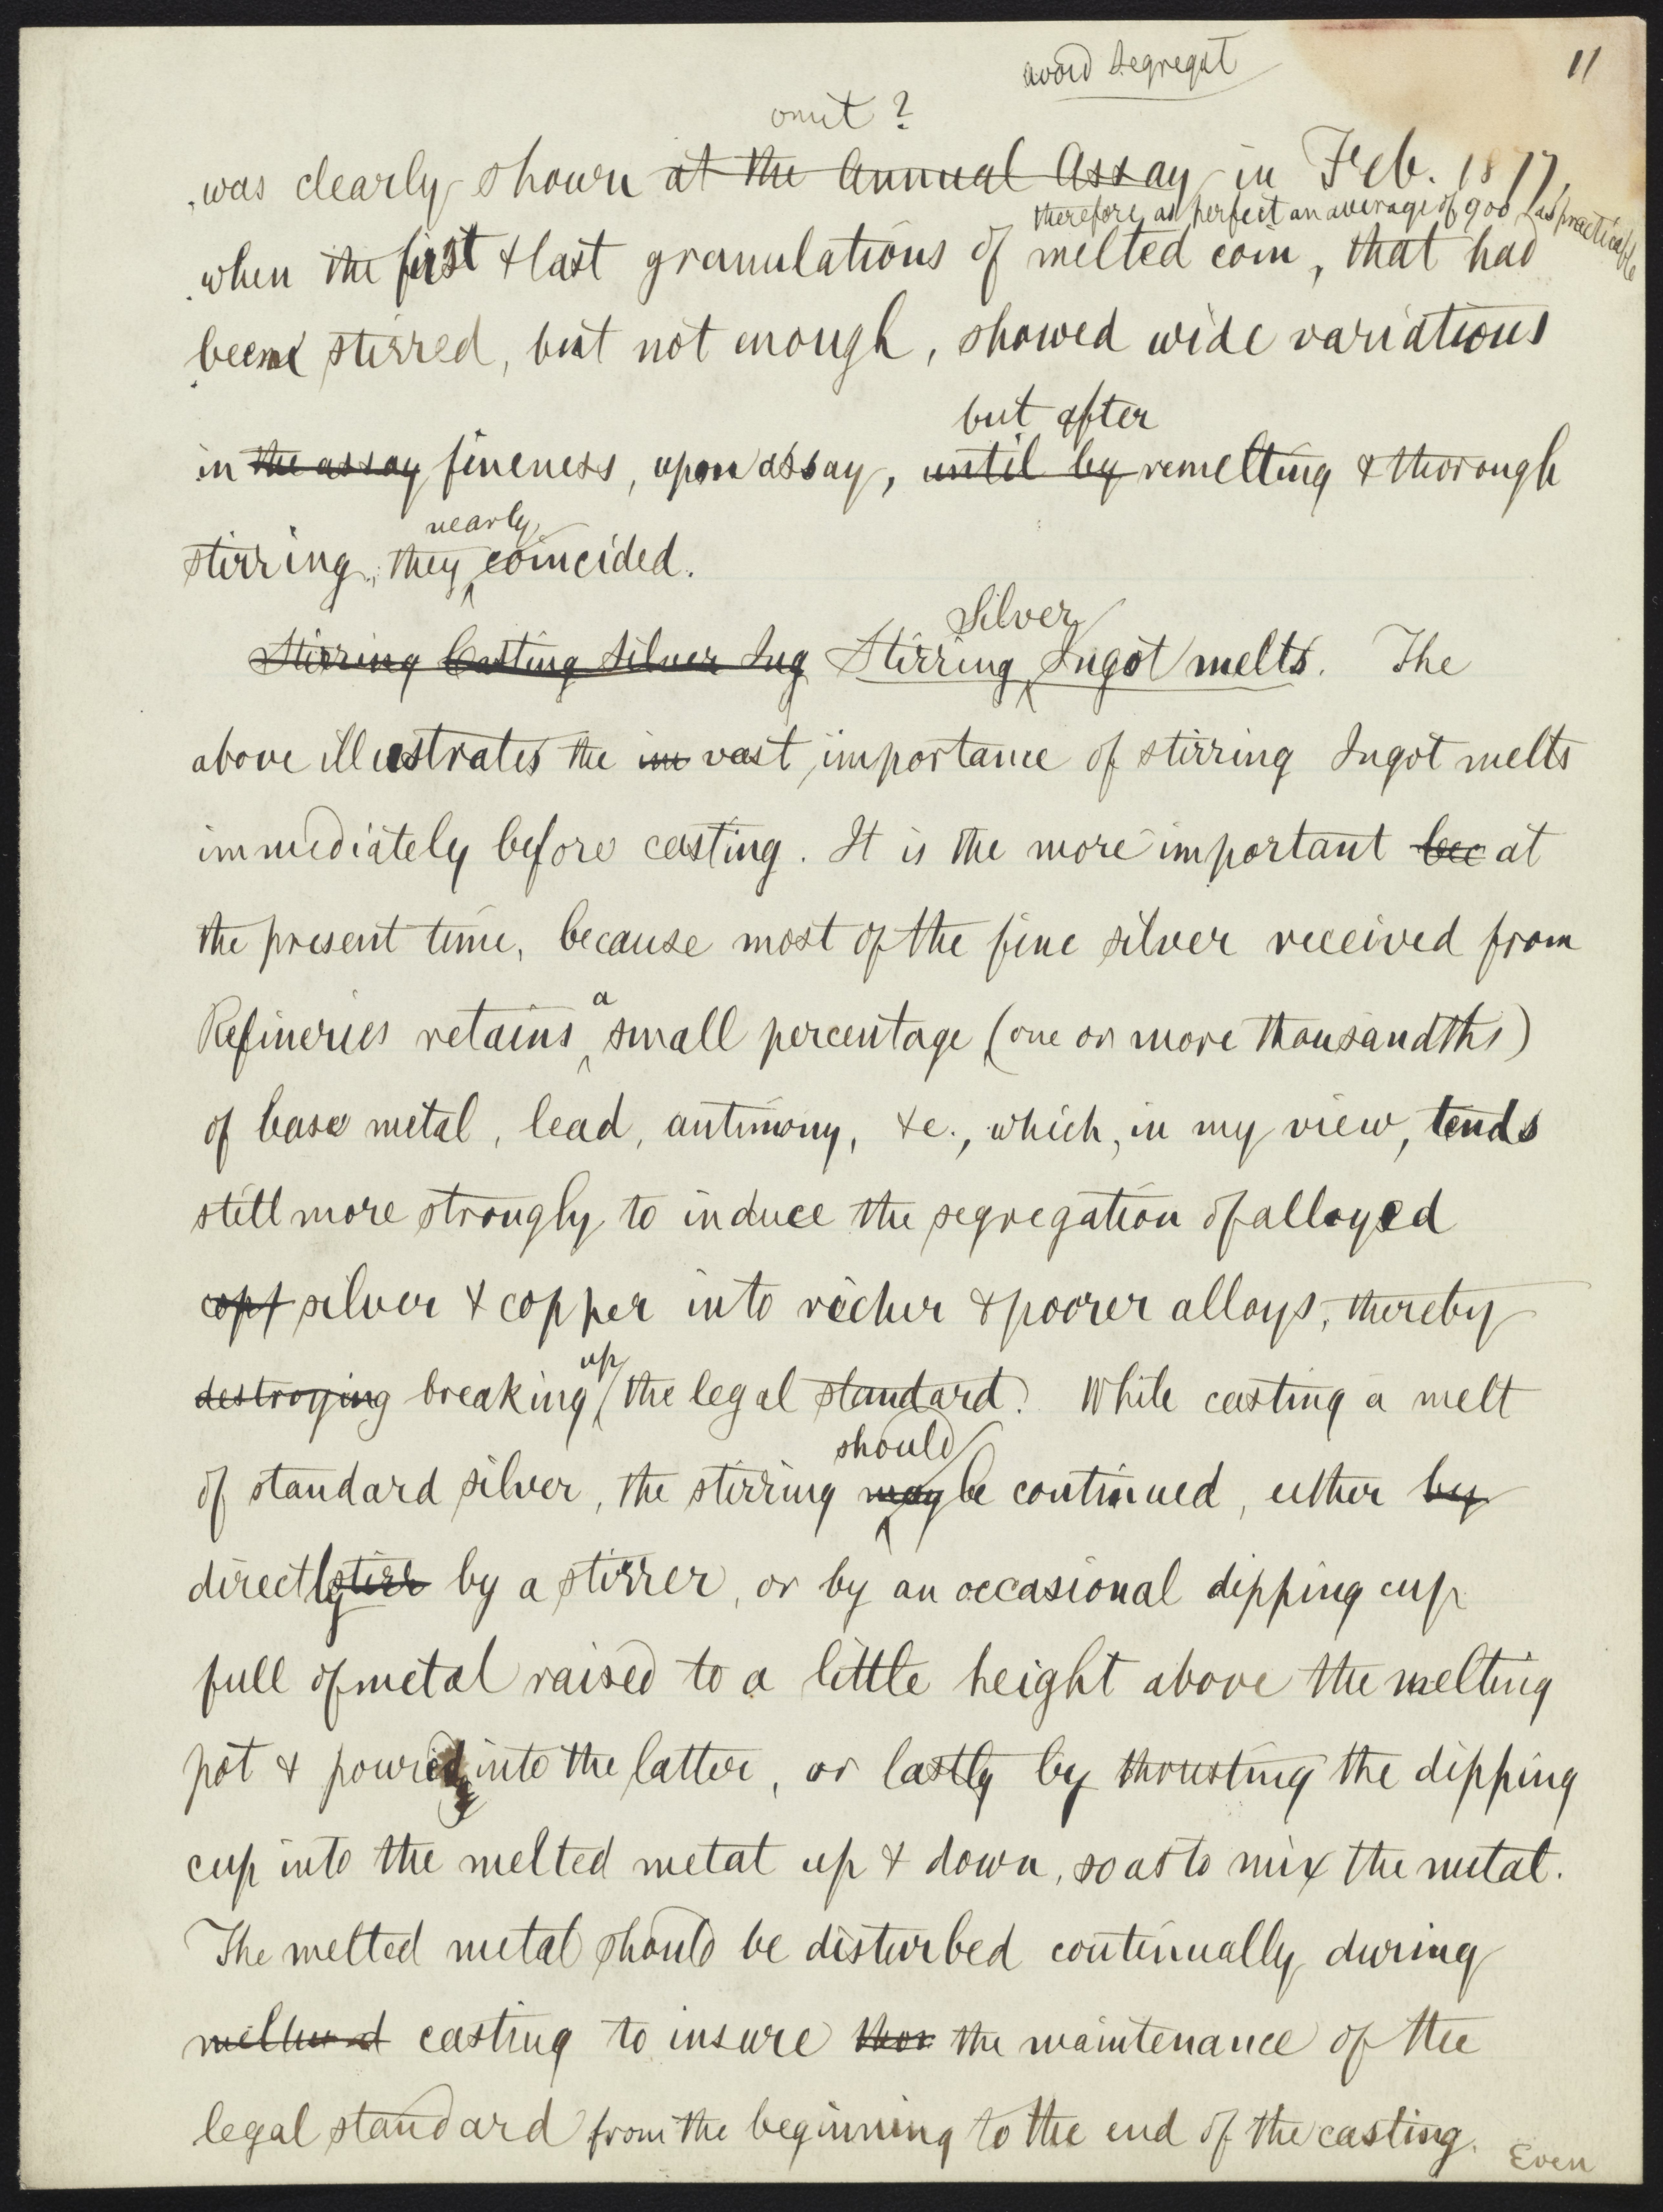 avoid Segregat
11
omit ?
was clearly shown at the Annual Assay in Feb. 1877,
therefore, as perfect an average of 900 as practicable
when the first & last granulations of melted coin, that had
been stirred, but not enough, showed wide variations
but after
in the assay fineness, upon assay, until by remelting & thorough
nearly
stirring, they coincided.
Silver
Stirring Casting Silver Ing Stirring Ingot melts. The
above illustrates the im vast importance of stirring Ingot melts
immediately before casting. It is the more important bec at
the present time, because most of the fine silver received from
a
Refineries retains small percentage (one or more thousandths)
of base metal, lead, antimony, &c., which, in my view, tends
still more strongly to induce the segregation of alloyed
copp silver & copper into richer & poorer alloys, thereby
up
destroying breaking the legal standard. While casting a melt
should
of standard silver, the stirring may be continued, either by
directly stirr by a stirrer, or by an occasional dipping cup
full of metal raised to a little height above the melting
pot & poured into the latter, or lastly by thrusting the dipping
cup into the melted metal up & down, so as to mix the metal.
The melted metal should be disturbed continually during
casting to insure thor the maintenance of the
legal standard from the beginning to the end of the casting.
Even